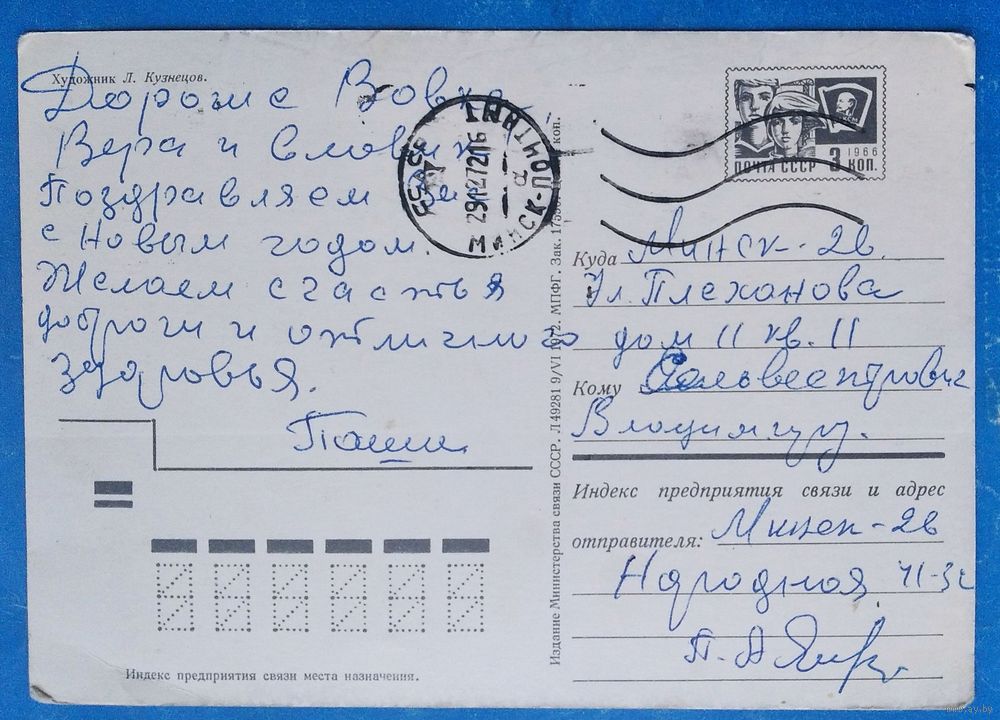 Художник Л. Кузнецов.
Дорогие Вовка
Вера и Славик
Поздравляем Вас
с Новым годом.
Желаем счастья
доброго и отличного
здоровья.
Паши
МИНСК-ПОЧТАМТ
291272 16
ПОЧТА СССР
1966
3 КОП.
Куда Минск-26.
Ул. Плеханова
дом 11 кв. 11
Кому Сальвестрович
Владимиру.
Индекс предприятия связи и адрес
отправителя: Минск-26
Народная 41-32
П. А.
Издание Министерства связи СССР. Л49281 9/VI 1972. МПФГ. Зак.
Индекс предприятия связи места назначения.